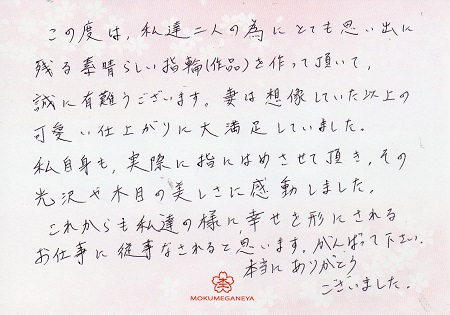 この度は、私達二人の為にとても思い出に
残る素晴らしい指輪(作品)を作って頂いて、
誠に有難うございます。妻は想像していた以上の
可愛い仕上がりに大満足していました。
私自身も、実際に指にはめさせて頂き、その
光沢や木目の美しさに感動しました。
これからも私達の様に幸せを形にされる
お仕事に従事なされると思います。がんばって下さい。
本当にありがとう
ございました。
MOKUMEGANEYA